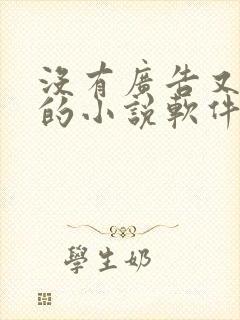 沒有廣告又
的小說軟件
學生奶